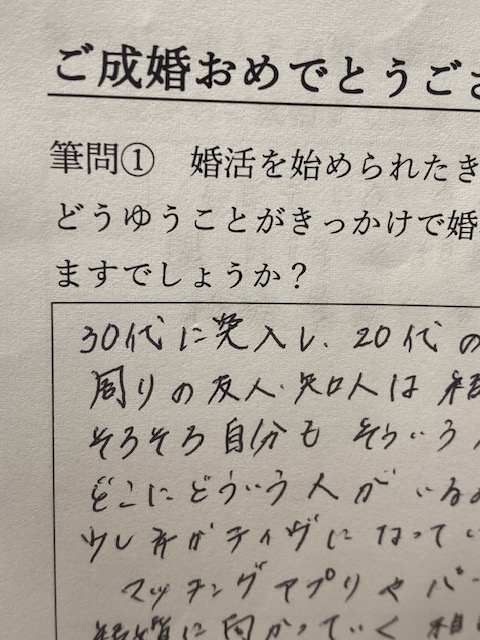 ご成婚おめでとうござ
筆問① 婚活を始められたき
どうゆうことがきっかけで婚
ますでしょうか？
30代に突入し、20代の
周りの友人・知人は結
そろそろ自分も そういう
どこにどういう人が いるの
少しネガティヴに なってい
マッチングアプリや パー
に向かっていく 相